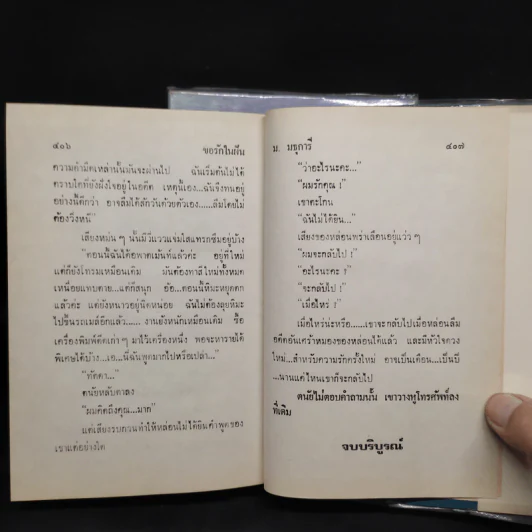 ๔๐๖ ขอรักในฝัน
ความดำมืดเหล่านั้นมันจะผ่านไป ฉันเริ่มต้นไม่ได้
ตราบใดที่ยังฝังใจอยู่ในอดีต เหตุนี้เอง...ฉันจึงทนอยู่
อย่างนี้ดีกว่า อาจลืมได้สักวันด้วยตัวเอง......ลืมโดยไม่
ต้องวิ่งหนี"
เสียงหม่นๆ นั้นมีวี่แววแจ่มใสแทรกซึมอยู่บ้าง
"ตอนนี้ฉันได้อพาตเม้นท์แล้วค่ะ อยู่ที่ใหม่
แต่ก็ยังโทรมเหมือนเดิม มันต้องทาสีใหม่ทั้งหมด
เหนื่อยแทบตาย...แต่ก็สนุก อ้อ...ตอนนี้หิมะหยุดตก
แล้วค่ะ แต่ยังหนาวอยู่นิดหน่อย ฉันไม่ต้องลุยหิมะ
ไปขึ้นรถเมล์อีกแล้ว...... งานยังหนักเหมือนเดิม ซื้อ
เครื่องพิมพ์ดีดเก่าๆ มาไว้เครื่องหนึ่ง พอจะหารายได้
พิเศษได้บ้าง...เอ...นี่ฉันพูดมากไปหรือเปล่า..."
"ทัดดา..."
ดนัยหลับตาลง
"ผมคิดถึงคุณ...มาก"
แต่เสียงรบกวนทำให้หล่อนไม่ได้ยินคำพูดของ
เขาแต่อย่างใด
ม. มธุการี ๔๐๗
"ว่าอะไรนะคะ..."
"ผมรักคุณ !"
เขาตะโกน
"ฉันไม่ได้ยิน..."
เสียงของหล่อนพร่าเลือนอยู่แว่วๆ
"ผมจะกลับไป !"
"อะไรนะคะ !"
"จะกลับไป !"
"เมื่อไหร่ !"
เมื่อไหร่น่ะหรือ......เขาจะกลับไปเมื่อหล่อนลืม
อดีตอันเศร้าหมองของหล่อนได้แล้ว และมีหัวใจดวง
ใหม่...สำหรับความรักครั้งใหม่ อาจเป็นเดือน...เป็นปี
...นานแค่ไหนเขาก็จะกลับไป
ดนัยไม่ตอบคำถามนั้น เขาวางหูโทรศัพท์ลง
ที่เดิม
จบบริบูรณ์